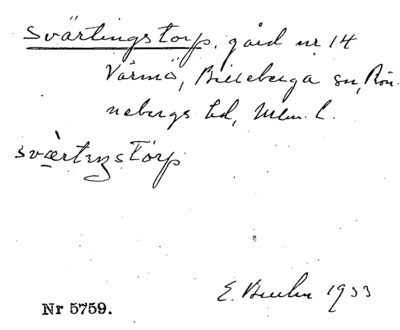 Svärtingstorp, gård nr 14
Värmö, Billeberga sn, Rön-
nebergs hd, Mlm. l.
svàrtıŋstòrp
E. 1933
Nr 5759.